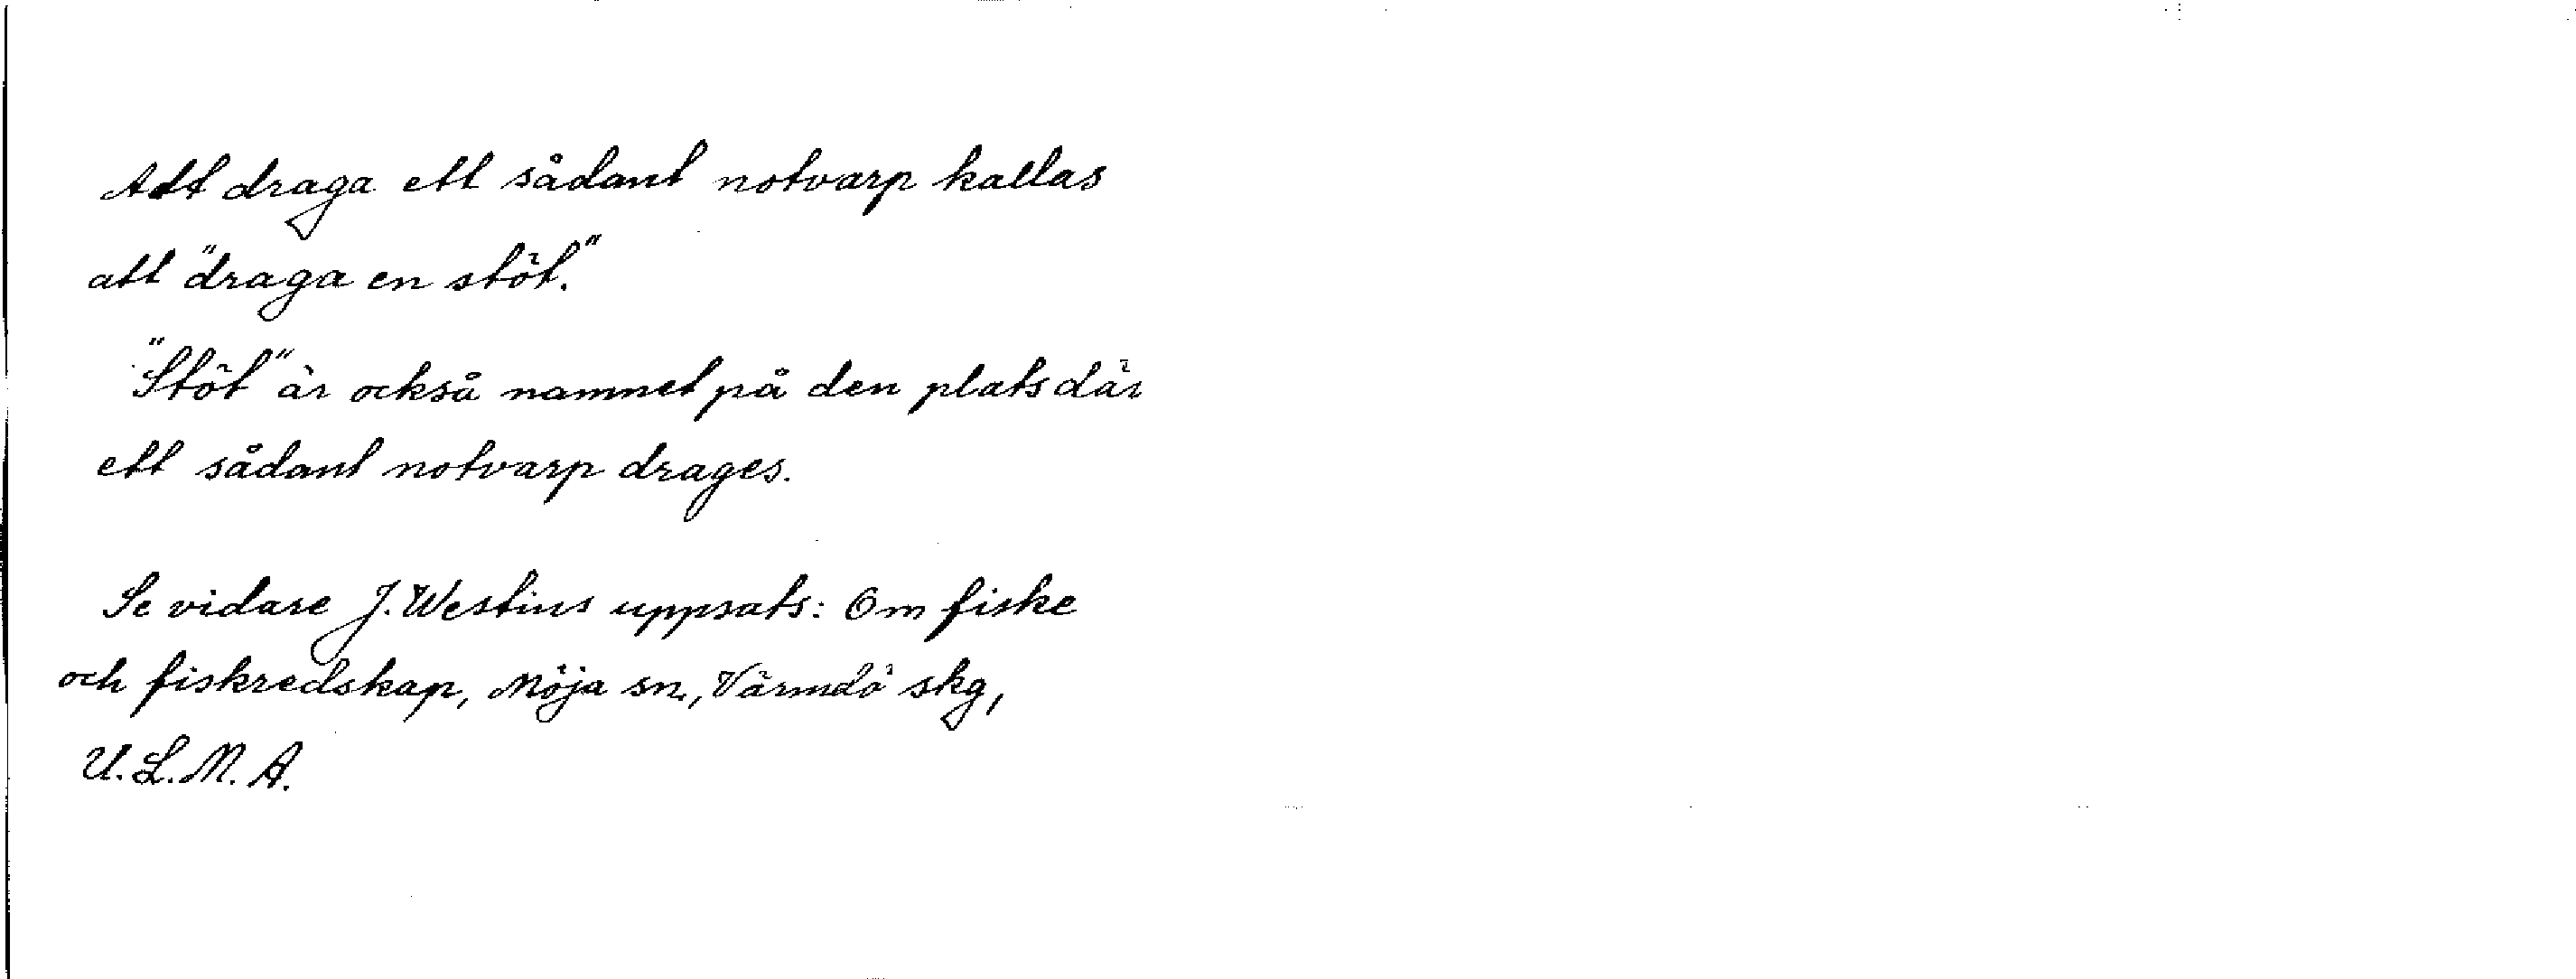 Att draga ett sådant notvarp kallas
att "draga en stöt."
"Stöt" är också namnet på den plats där
ett sådant notvarp drages.
Se vidare J. Westins uppsats: Om fiske
och fiskredskap, Möja sn., Värmdö skg,
U.L.M.A.